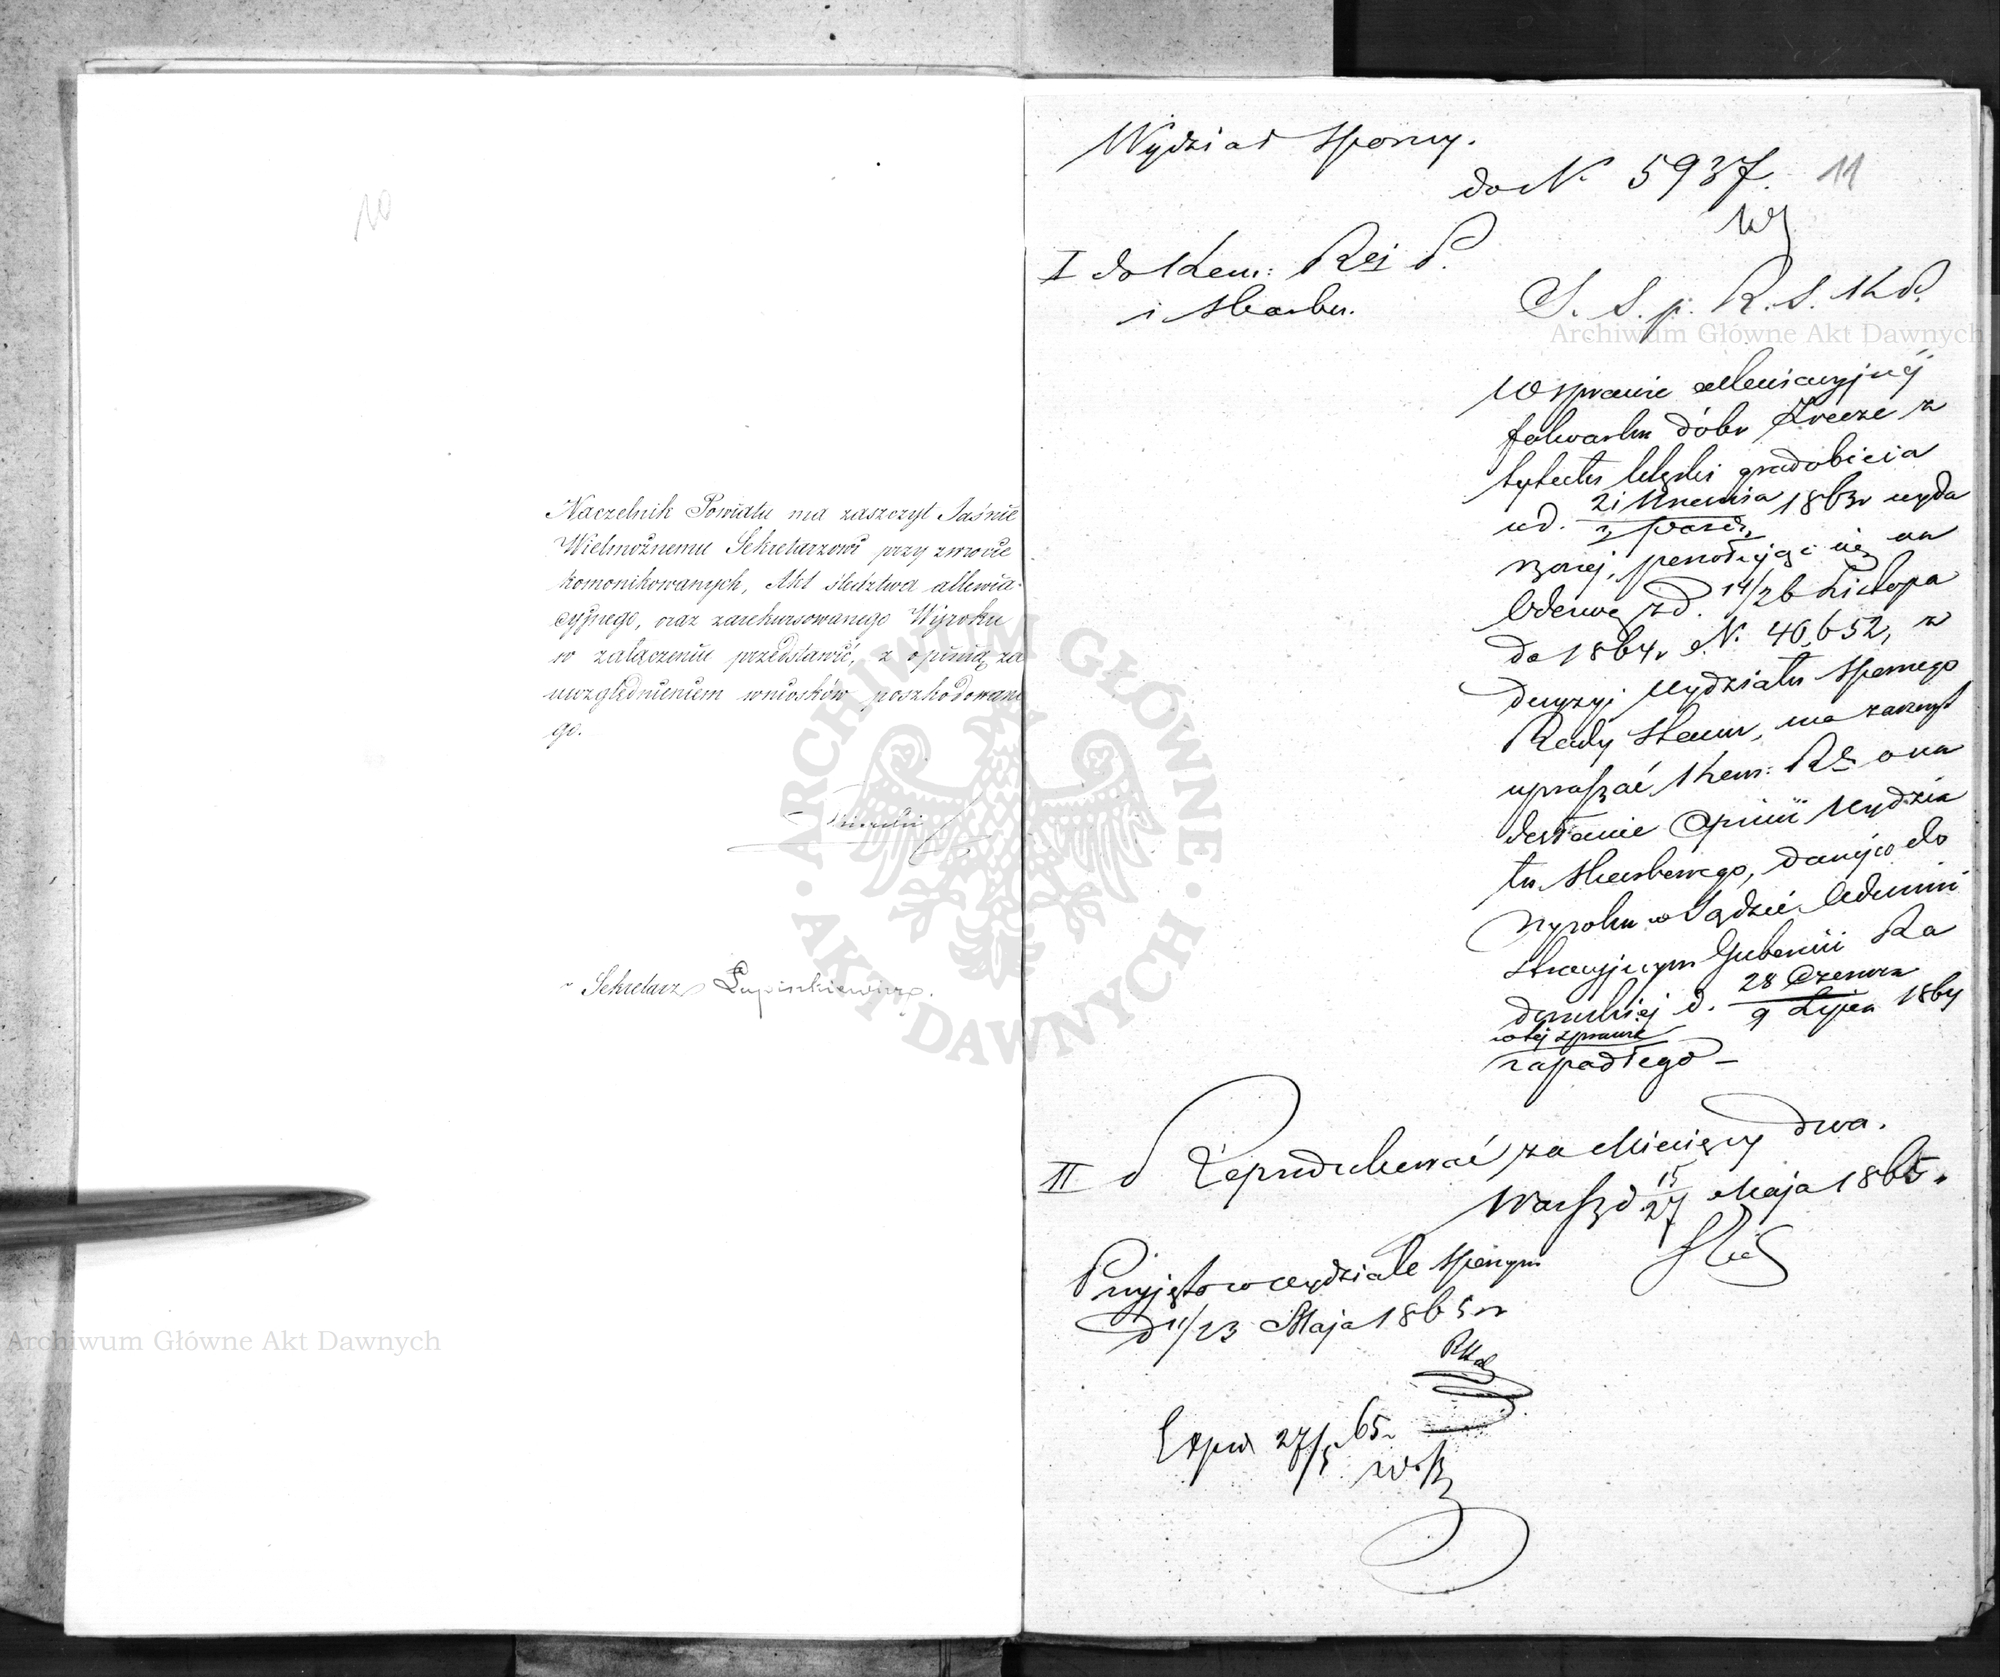 10
Naczelnik Powiatu ma zaszczyt Jaśnie
Wielmożnemu Sekretarzowi przy zwrocie
komonikowanych, Akt śledztwa allewia-
cyjnego, oraz zarekursowanego Wyroku
w załączeniu przedstawić, z opinią za
uwzględnieniem wniosków poszkodowane
go.
Sekretarz Łupinkiewicz.
Wydział Sporny.
do N. 5937.
11
I do Kom: Rzj P.
i Skarbu.
S. S. p. R. S. K. P.
W sprawie allewiacyjnéj
folwarku dóbr z
tytułu klęski gradobicia
w d. 21 Września 1863 r wyda
3 Paźdz
rzonej, powołując się na
Odezwę z d. 14/26 Listopa
da 1864 r N. 40,652, z
decyzyi Wydziału Spornego
Rady Stanu, ma zaszczyt
upraszać Kom: Rz. o na
desłanie Opinii Wydzia
łu Skarbowego, danéj co do
Wyroku w Sądzie Admini
stracyjnym Gubernii Ra
domskiej d. 28 Czerwca 1864
9 Lipca
w téj sprawie
zapadłego –
II Reprodukować za Miesięcy dwa.
Warsz d. 15/27 Maja 1865 r.
Przyjęto w wydziale Spornym
d 11/23 Maja 1865 r
Exped 27/5 65 r
Archiwum Główne Akt Dawnych
Archiwum Główne Akt Dawnych
ARCHIWUM GŁÓWNE • AKT DAWNYCH •